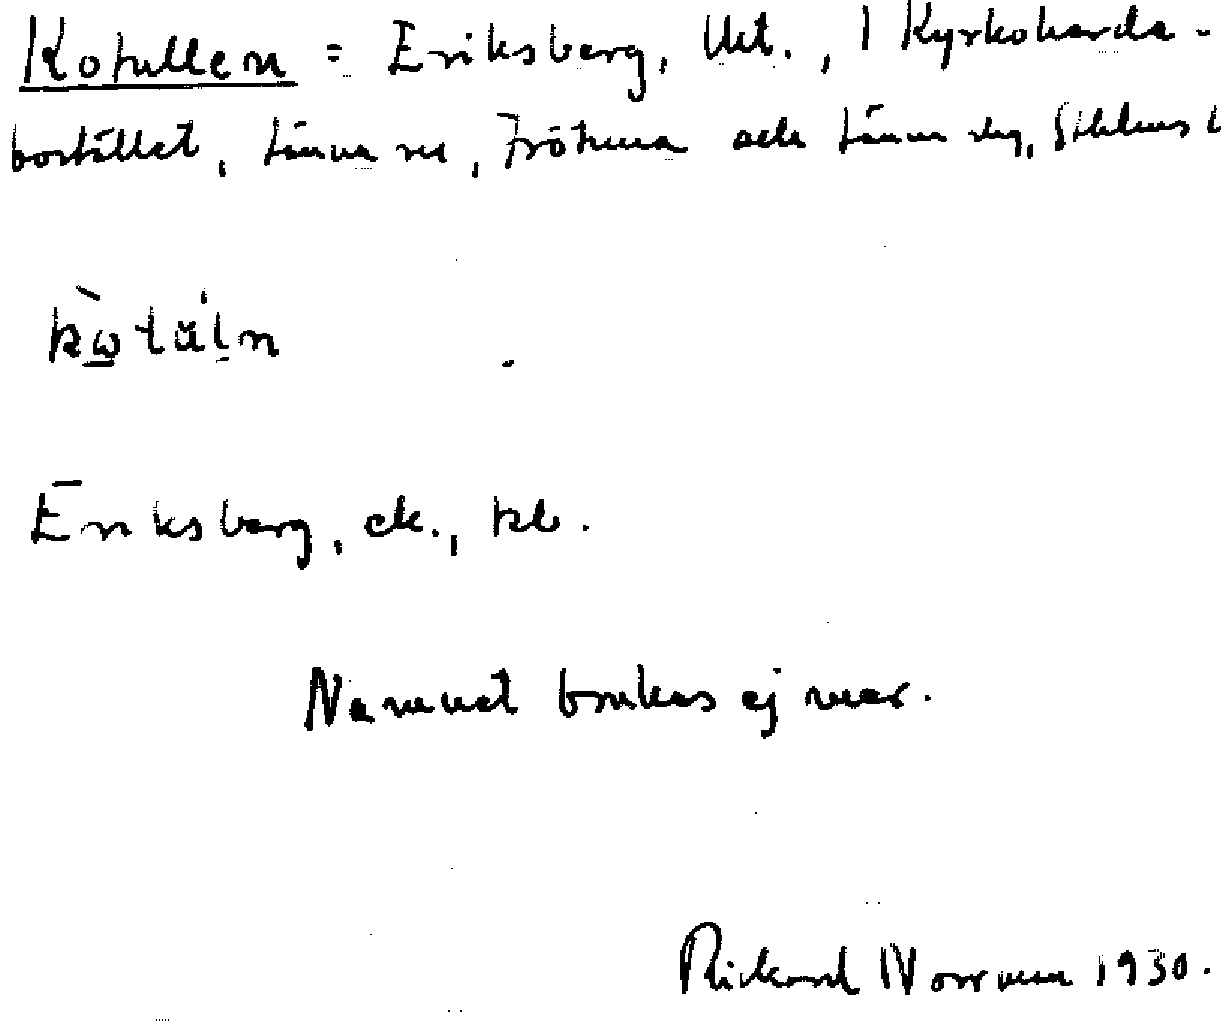 Kotullen = Eriksberg, lht., I Kyrkoherda-
bostället, Länna sn, Frötuna och Länna slg, Sthlms l
kωtål̩n
Eriksberg, ck., kb.
Namnet brukas ej mer.
Rickard Norrman 1930.